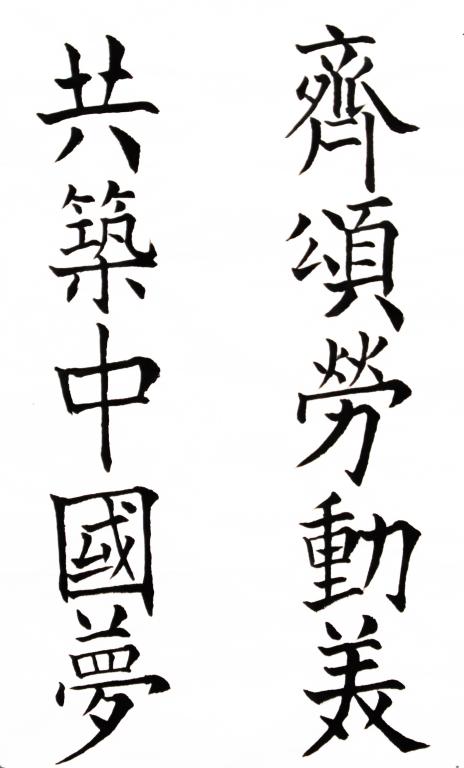 齊頌勞動美
共築中國夢